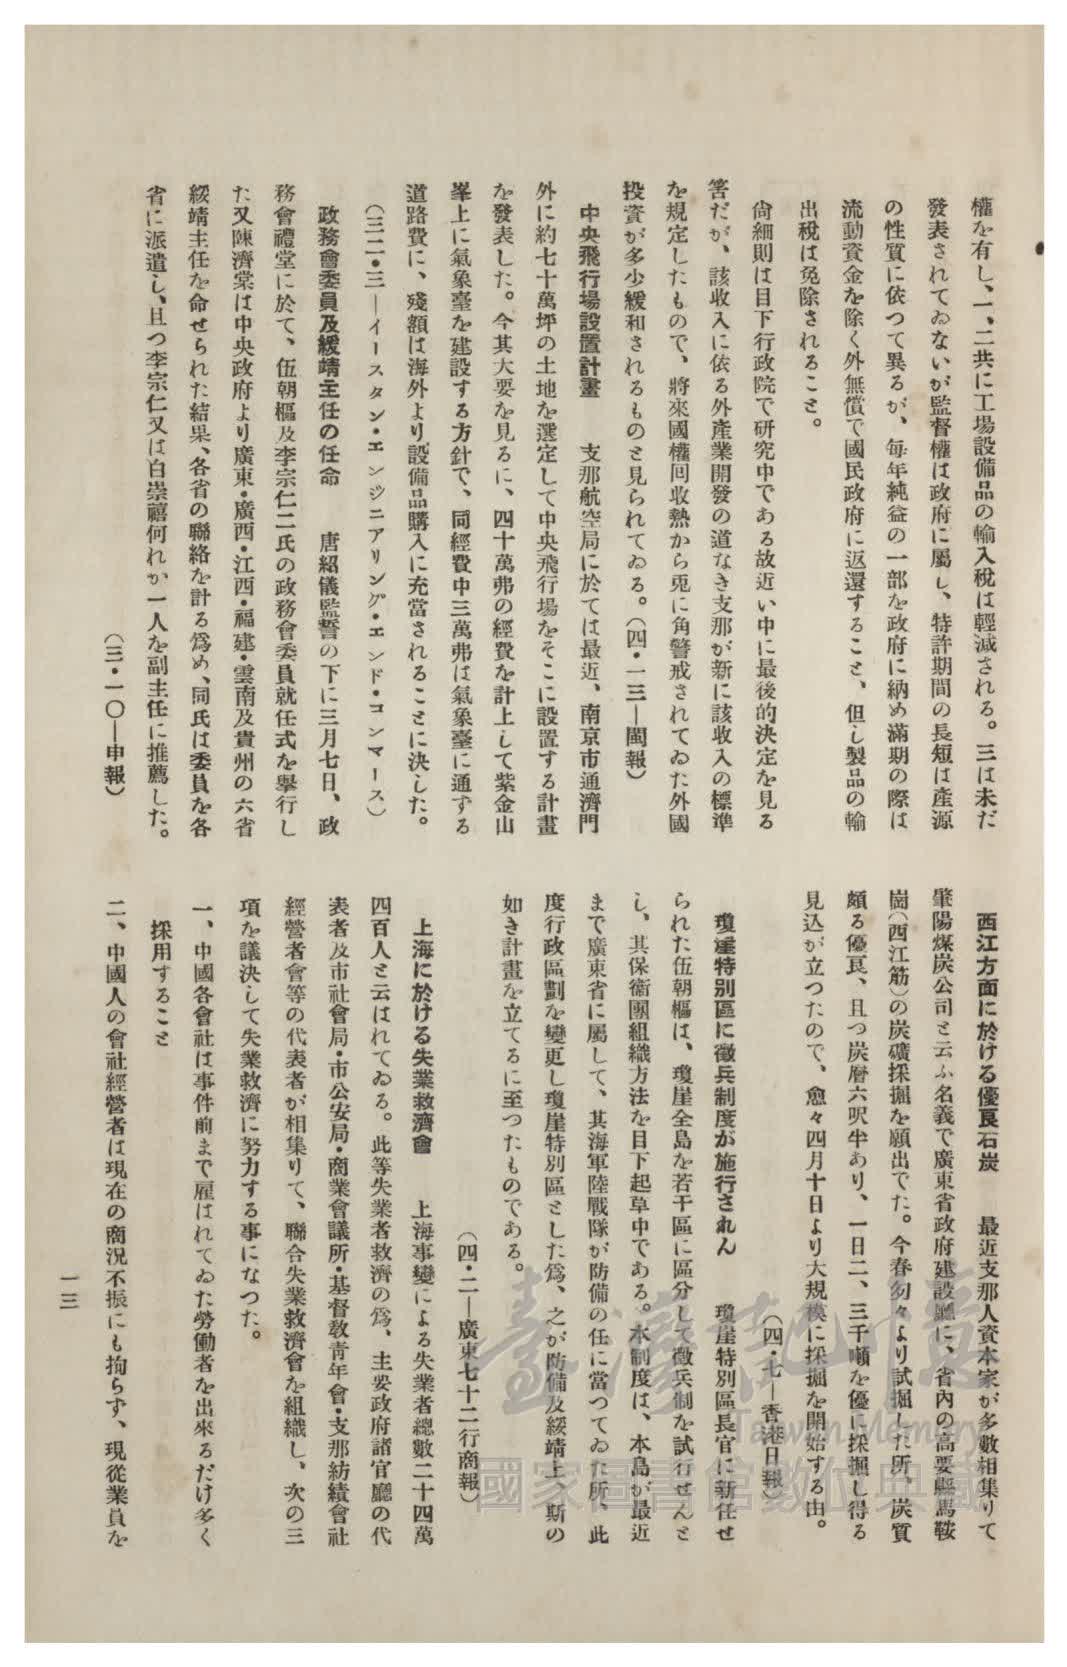 權を有し、一、二共に工場設備品の輸入稅は輕減される。三は未だ
發表されてゐないが監督權は政府に屬し、特許期間の長短は產源
の性質に依つて異るが、每年純益の一部を政府に納め滿期の際は
流動資金を除く外無償で國民政府に返還すること、但し製品の輸
出稅は免除されること。
尙細則は目下行政院で研究中である故近い中に最後的決定を見る
筈だが、該收入に依る外產業開發の道なき支那が新に該收入の標準
を規定したもので、將來國權回收熱から兎に角警戒されてゐた外國
投資が多少緩和されるものと見られてゐる。(四・一三―閩報)
中央飛行場設置計畫　支那航空局に於ては最近、南京市通濟門
外に約七十萬坪の土地を選定して中央飛行場をそこに設置する計畫
を發表した。今其大要を見るに、四十萬弗の經費を計上して紫金山
峯上に氣象臺を建設する方針で、同經費中三萬弗は氣象臺に通する
道路費に、殘額は海外より設備品購入に充當されることに決した。
(三二・三―イースタン・エンジニアリング・エンド・コンマース)
政務會委員及綏靖主任の任命　唐紹儀監誓の下に三月七日、政
務會禮堂に於て、伍朝樞及李宗仁二氏の政務會委員就任式を擧行し
た又陳濟棠は中央政府より廣東・廣西・江西・福建・雲南及貴州の六省
綏靖主任を命せられた結果、各省の聯絡を計る爲め、同氏は委員を各
省に派遣し、且つ李宗仁又は白崇禧何れか一人を副主任に推薦した。
(三・一〇―申報)
西江方面に於ける優良石炭　最近支那人資本家が多數相集りて
肇陽煤炭公司と云ふ名義で廣東省政府建設廳に、省內の高要縣馬鞍
崗(西江筋)の炭礦採掘を願出でた。今春匆々より試掘した所、炭質
頗る優良、且つ炭層六呎半あり、一日二、三千噸を優に採掘し得る
見込が立つたので、愈々四月十日より大規模に採掘を開始する由。
(四・七―香港日報)
瓊崖特別區に徵兵制度が施行されん　瓊崖特別區長官に新任せ
られた伍朝樞は、瓊崖全島を若干區に區分して徵兵制を試行せんと
し、其保衞團組織方法を目下起草中である。本制度は、本島が最近
まで廣東省に屬して、其海軍陸戰隊が防備の任に當つてゐた所、此
度行政區劃を變更し瓊崖特別區とした爲、之が防備及綏靖上、斯の
如き計畫を立てるに至つたものである。
(四・二―廣東七十二行商報)
上海に於ける失業救濟會　上海事變による失業者總數二十四萬
四百人と云はれてゐる。此等失業者救濟の爲、主要政府諸官廳の代
表者及市社會局・市公安局・商業會議所・基督敎靑年會・支那紡績會社
經營者會等の代表者が相集りて、聯合失業救濟會を組織し、次の三
項を議決して失業救濟に努力する事になつた。
一、中國各會社は事件前まで雇はれてゐた勞働者を出來るだけ多く
採用すること
二、中國人の會社經營者は現在の商況不振にも拘らず、現從業員を
一三
臺灣記憶
Taiwan Memory
國家圖書館數位典藏